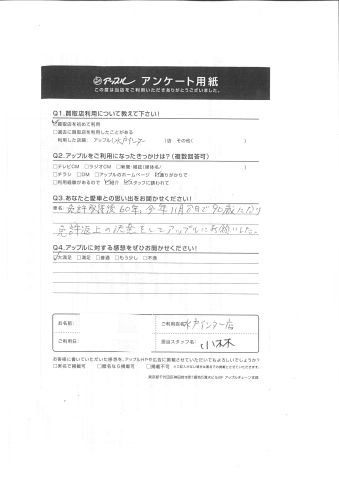 アップル アンケート用紙
この度は当店をご利用いただきありがとうございました。
Q1.買取店利用について教えて下さい!
☑買取店を初めて利用
□過去に買取店を利用したことがある
利用した店舗: アップル( 水戸インター )店 その他( )
Q2.アップルをご利用になったきっかけは?(複数回答可)
□テレビCM □ラジオCM □新聞・雑誌(媒体名: )
□チラシ □DM □アップルのホームページ ☑通りがかりで
□利用経験があるので ☑紹介 ☑スタッフに誘われて
Q3.あなたと愛車との思い出をお聞かせください!
車名: 免許取得後60年、今年11月8日で90歳になり
免許返上の決意をしてアップルにお願いした。
Q4.アップルに対する感想をぜひお聞かせください!
☑大満足 □満足 □普通 □もう少し □不満
お名前:
ご利用店名: 水戸インター店
ご利用日:
担当スタッフ名:
お客様に書いていただいた感想を、アップルHPや広告に掲載させていただいてもよろしいでしょうか?
□実名で掲載可 □匿名なら掲載可 □掲載不可